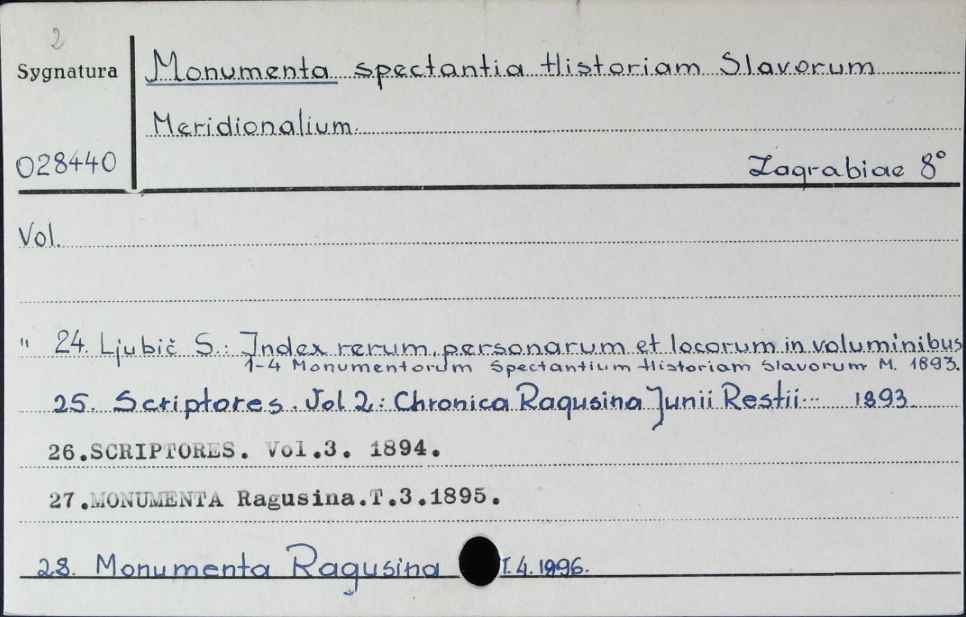 2
Sygnatura
Monumenta spectantia Historiam Slavorum
Meridionalium.
028440
Zagrabiae 8°
Vol.
" 24. Ljubić S.: Index rerum, personarum et locorum in voluminibus
1-4 Monumentorum Spectantium Historiam Slavorum M. 1893.
25. Scriptores. Vol 2: Chronica Ragusina Junii Restii... 1893.
26.SCRIPTORES. Vol.3. 1894.
27.MONUMENTA Ragusina.T.3.1895.
28. Monumenta Ragusina T.4. 1896.